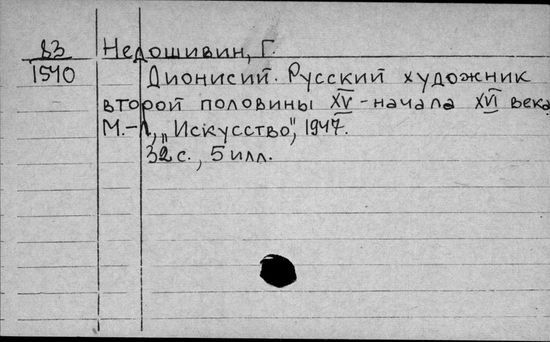 83 Недошивин, Г.
1540 Дионисий. Русский художник
второй половины XV - начала XVI века
М.-Л, „Искусство", 1947.
32 с., 5 илл.